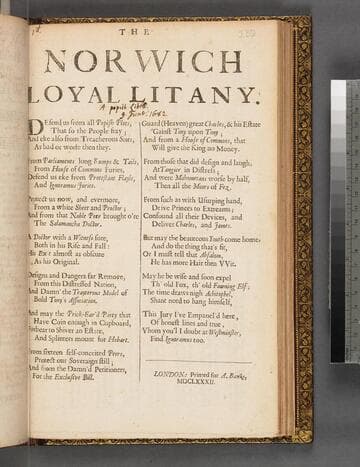 THE
NORWICH
LOYAL LITANY.
A popish Libel.
9 June. 1682
DEfend us from all Popish Plots,
That so the People fray;
And eke also from Treacherous Scots,
As bad or worse then they.
From Parliaments long Rumps & Tails,
From House of Commons Furies,
Defend us eke from Protestant Flayls,
And Ignoramus Juries.
Protect us now, and evermore,
From a white Sheet and Proctor;
And from that Noble Peer brought o're
The Salamancha Doctor.
A Doctor with a Witness sore,
Both in his Rise and Fall:
His Exit almost as obscure
As his Original.
Designs and Dangers far Remove,
From this Distressed Nation,
And Damn the Trayterous Model of
Bold Tony's Association.
And may the Prick-Ear'd Party that
Have Coin enough in Cupboard,
forbear to Shiver an Estate,
And Splinters mount for Hobart.
From sixteen self-conceited Peers,
Protect our Soveraign still;
And from the Damn'd Petitioners,
For the Exclusive Bill.
Guard (Heaven) great Charles, & his Estate
'Gainst Tony upon Tony,
And from a House of Commons, that
Will give the King no Money.
From those that did design and laugh,
At Tangier in Distress;
And were Mahometans worse by half,
Then all the Moors of Fez.
From such as with Usurping hand,
Drive Princes to Extreams;
Confound all their Devices, and
Deliver Charles, and James.
But may the beauteous Youth come home;
And do the thing that's fit,
Or I must tell that Absalom,
He has more Hair then VVit.
May he be wise and soon expel
Th' old Fox, th' old Fawning Elf;
The time draws nigh Achitophel,
Shant need to hang himself,
This Jury I've Empanel'd here,
Of honest lines and true,
Whom you'l I doubt at Westminster,
Find Ignoramus too.
LONDON: Printed for A. Banks,
MDCLXXXII.